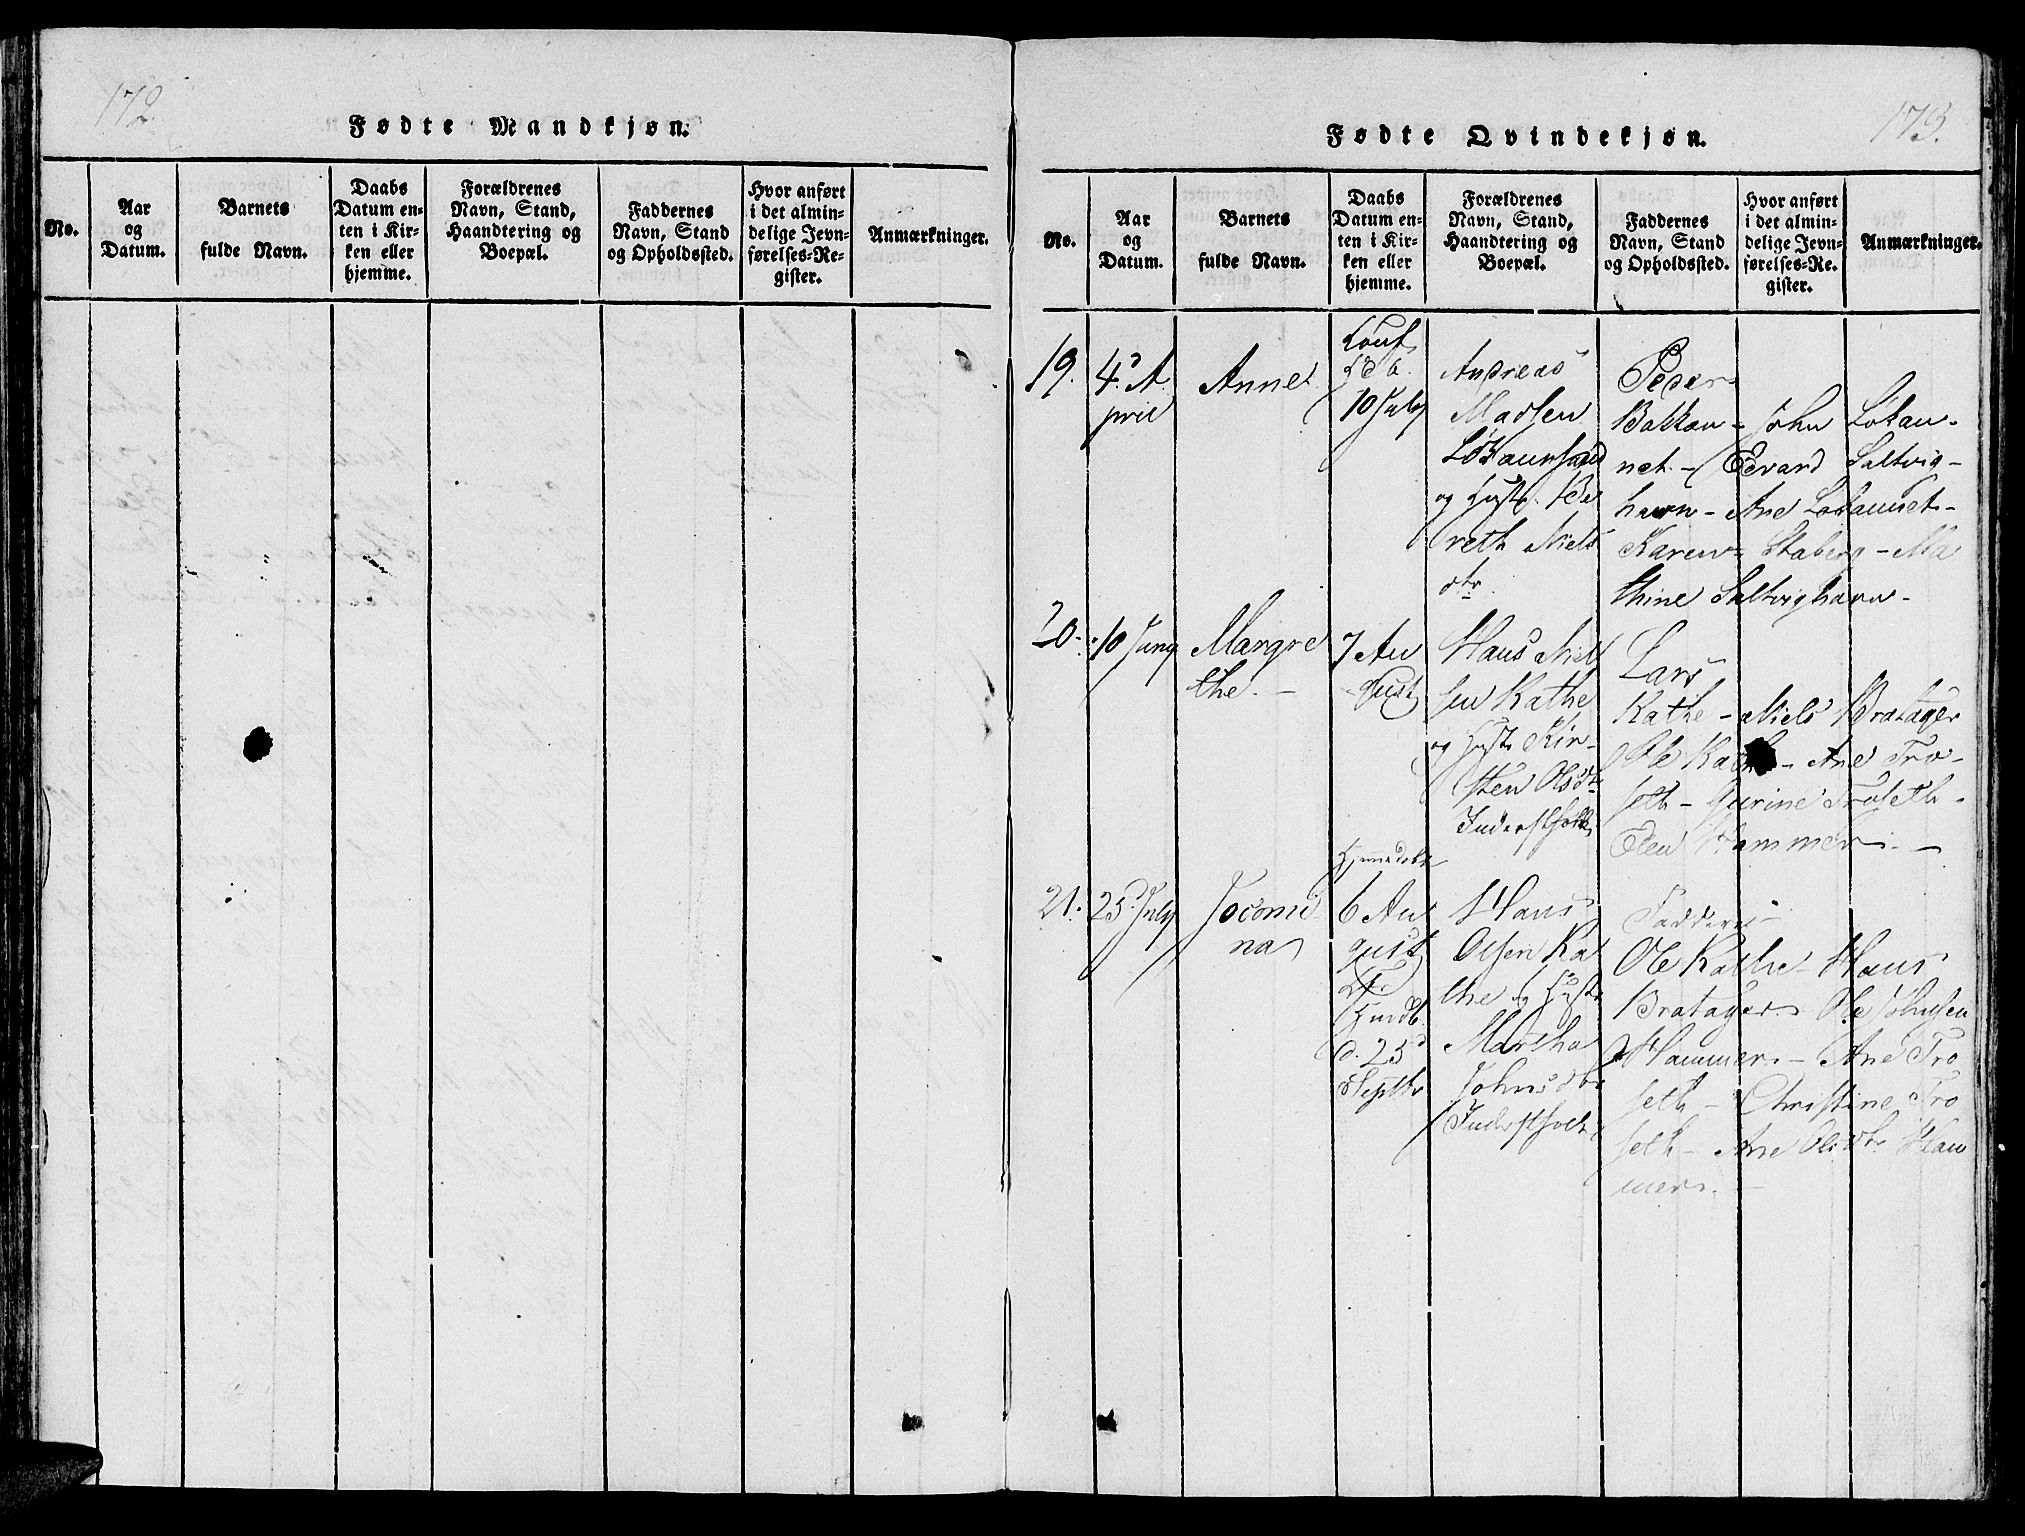 172
Fødte Mandkjøn.
No.
Aar
og
Datum.
Barnets
fulde Navn.
Daabs
Datum en-
ten i Kir-
ken eller
hjemme.
Forældrenes
Navn, Stand,
Haandtering og
Boepæl.
Faddernes
Navn, Stand
og Opholdssted.
Hvor anført
i det almin-
delige Jevn-
førelses-Re-
gister.
Anmærkninger.
173.
Fødte Qvindekjøn.
No.
Aar
og
Datum.
Barnets
fulde Navn.
Daabs
Datum en-
ten i Kir-
ken eller
hjemme.
Forældrenes
Navn, Stand,
Haandtering og
Boepæl.
Faddernes
Navn, Stand
og Opholdssted.
Hvor anført
i det almin-
delige Jevn-
førelses-Re-
gister.
Anmærkninger.
19.
4d A
pril
Anne
10 July
Andreas
Madsen
og Hustr. Be
reth Niels
dtr.
Peder
Bakkan- John Løkan-
net- Evard Saltvig-
havn- Ane Løkannet-
Karen Staberg- Ma
thine Saltvighavn-
20.
10 Juny
Margre
the.-
7 Au
gust
Hans Niel
sen Kathe
og Hustr Kir-
sten Olsdtr
Inderstfolk
Lars
Kathe- Niels Bratager
Ole Kathe- Ane Trø-
seth- Gurine Trøseth-
Elen Hammer.-
21.
25d July
Jocomi
na
Hjemmedøbt
6 Au
gust
d. 25d
Septbr
Hans
Olsen Ka
the og Hustr
Martha
Johnsdtr
Inderstfolk
Faddere-
Ole Kathe- Hans
Bratager- Ole Johnsen
Hammer- Ane Trø
seth- Christine Trø
seth- Ane Olsdtr Ham
mer.-